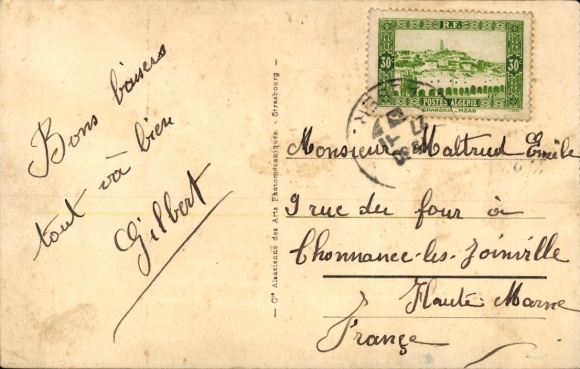 Bons baisers
tout va bien
Gilbert
Cie Alsacienne des Arts Photomécaniques. - Strasbourg
R.F.
30c 30c
POSTES ALGERIE
GHARDAIA - MZAB
Monsieur Maltrud Emile
9 rue du four à
Chonnance-les-Joinville
Haute Marne
France